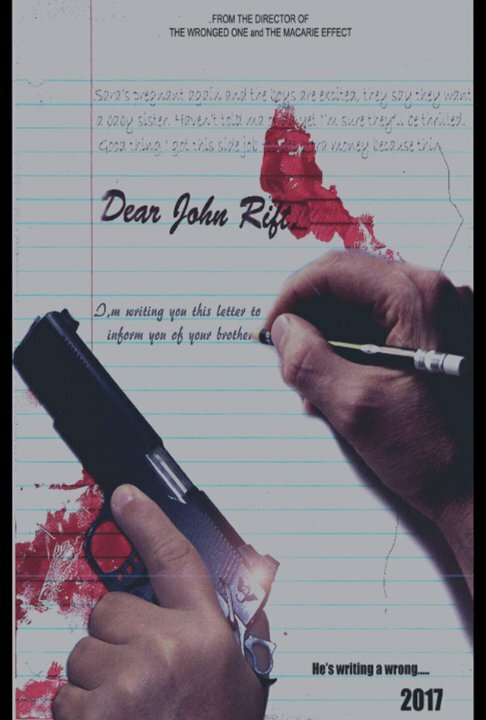 .FROM THE DIRECTOR OF
THE WRONGED ONE and THE MACARIE EFFECT
Sara's pregnant again and the boys are excited, they say they want
a baby sister. Haven't told ma yet I'm sure they'll be thrilled.
Good thing I got this side job money because
Dear John Rift,
I,m writing you this letter to
inform you of your brother
He's writing a wrong.....
2017